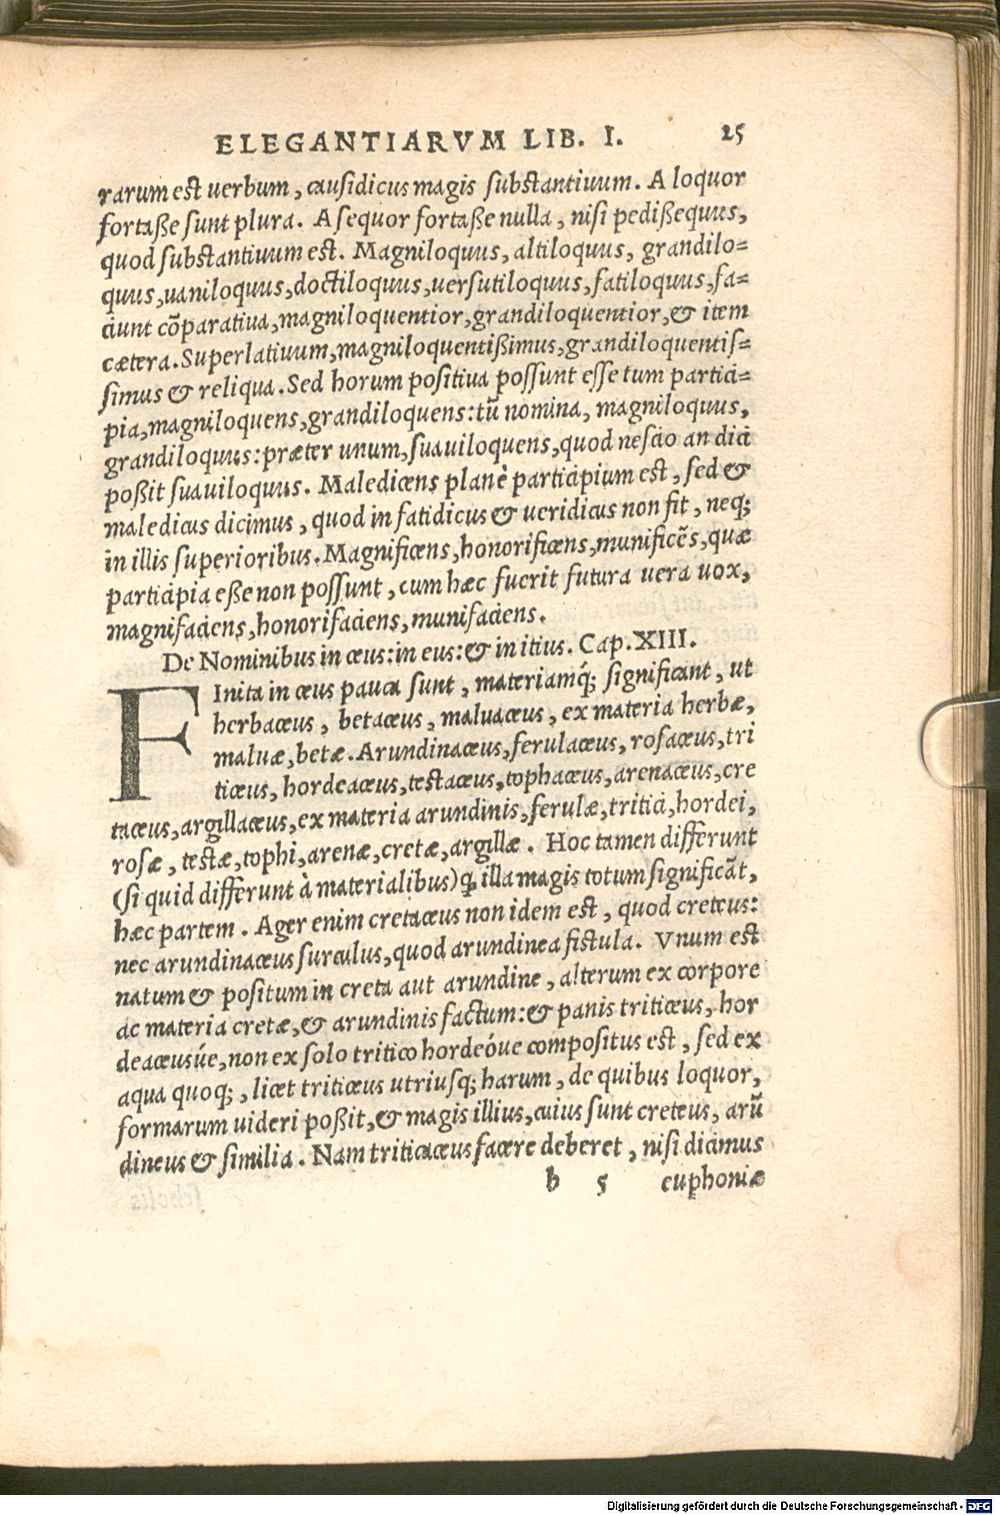 ELEGANTIARVM LIB. I. 25
rarum est uerbum, causidicus magis substantiuum. A loquor
fortaße sunt plura. A sequor fortaße nulla, nisi pedißequus,
quod substantiuum est. Magniloquus, altiloquus, grandilo-
quus, uaniloquus, doctiloquus, uersutiloquus, fatiloquus, fa-
ciunt cõparatiua, magniloquentior, grandiloquentior, & item
cætera. Superlatiuum, magniloquentißimus, grandiloquentis-
simus & reliqua. Sed horum positiua possunt esse tum partici-
pia, magniloquens, grandiloquens: tũ nomina, magniloquus,
grandiloquus: præter unum, suauiloquens, quod nescio an dici
poßit suauiloquus. Maledicens planè participium est, sed &
maledicus dicimus, quod in fatidicus & ueridicus non fit, neq;
in illis superioribus. Magnificens, honorificens, munificẽs, quæ
participia eße non possunt, cum hæc fuerit futura uera uox,
magnifaciens, honorifaciens, munifaciens.
De Nominibus in ceus: in eus: & in itius. Cap. XIII.
FInita in ceus pauca sunt, materiamq́; significant, ut
herbaceus, betaceus, maluaceus, ex materia herbæ,
maluæ, betæ. Arundinaceus, ferulaceus, rosaceus, tri
ticeus, hordeaceus, testaceus, tophaceus, arenaceus, cre
taceus, argillaceus, ex materia arundinis, ferulæ, tritici, hordei,
rosæ, testæ, tophi, arenæ, cretæ, argillæ. Hoc tamen differunt
(si quid differunt à materialibus) ꝙ illa magis totum significãt,
hæc partem. Ager enim cretaceus non idem est, quod creteus:
nec arundinaceus surculus, quod arundinea fistula. Vnum est
natum & positum in creta aut arundine, alterum ex corpore
ac materia cretæ, & arundinis factum: & panis triticeus, hor
deaceusúe, non ex solo tritico hordeóue compositus est, sed ex
aqua quoq;, licet triticeus utriusq; harum, de quibus loquor,
formarum uideri poßit, & magis illius, cuius sunt creteus, arũ
dineus & similia. Nam triticaceus facere deberet, nisi dicimus
b 5 euphoniæ
Digitalisierung gefördert durch die Deutsche Forschungsgemeinschaft - DFG